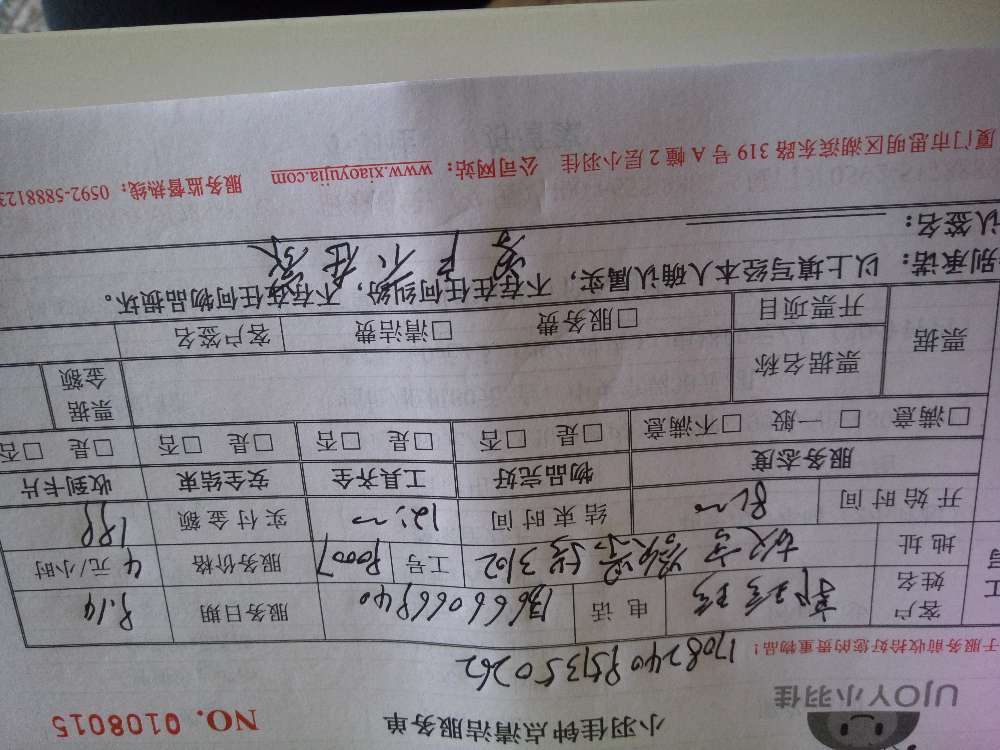 小羽佳钟点清洁服务单 NO. 0108015
UJOY小羽佳
于服务前收拾好您的贵重物品!
170824098135 0262
客户姓名 电话 服务日期 8.14
地址 3102 工号 80007 服务价格 4 元/小时
开始时间 8:00 结束时间 12:00 实付金额 188
服务态度 物品完好 工具齐全 安全结束 收到卡片
□满意 □一般 □不满意 □是 □否 □是 □否 □是 □否 □是 □否
票据 票据名称 票据金额
开票项目 □服务费 □清洁费 客户签名
别承诺:以上填写经本人确认属实,不存在任何纠纷,不存在任何物品损坏。
客户不在家
认签名:
厦门市思明区湖滨东路 319 号 A 幢 2 层小羽佳 公司网站:www.xiaoyujia.com 服务监督热线:0592-5888123